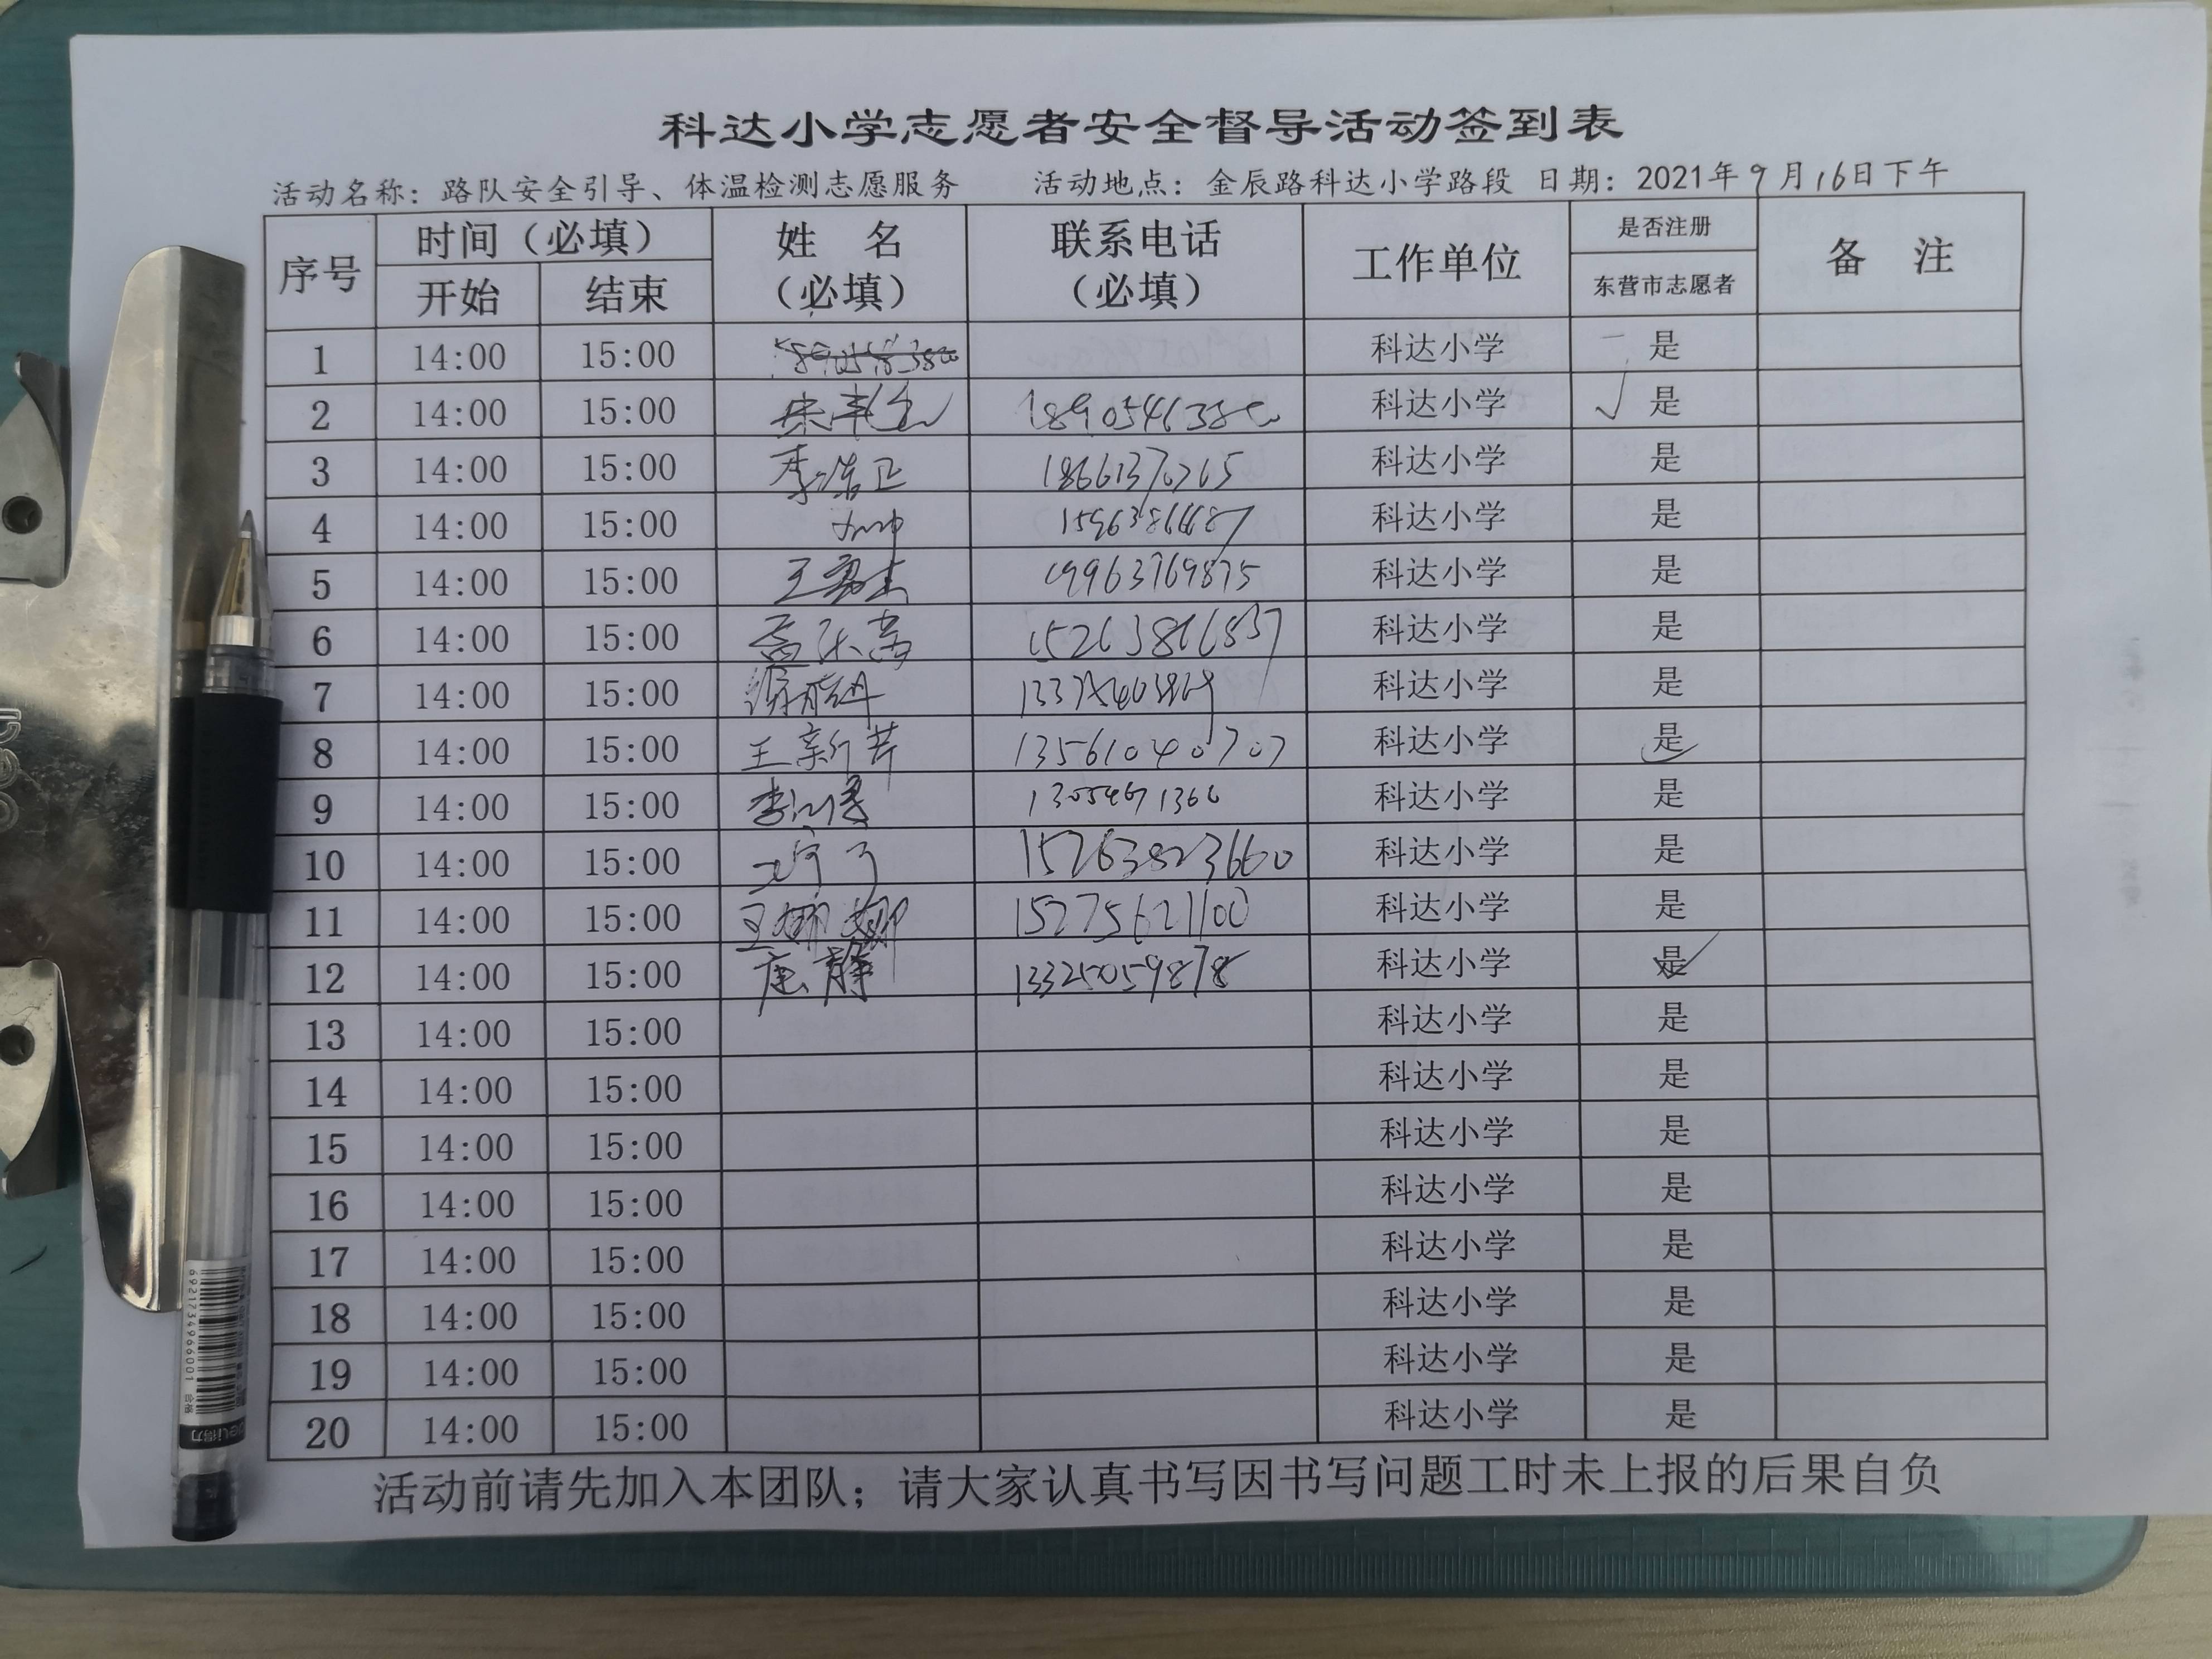 科达小学志愿者安全督导活动签到表
活动名称：路队安全引导、体温检测志愿服务 活动地点：金辰路科达小学路段 日期：2021年9月16日下午
序号 时间（必填） 姓 名（必填） 联系电话（必填） 工作单位 是否注册 备 注
开始 结束 东营市志愿者
1 14:00 15:00 科达小学 是
2 14:00 15:00 科达小学 √ 是
3 14:00 15:00 18661370265 科达小学 是
4 14:00 15:00 科达小学 是
5 14:00 15:00 19963769875 科达小学 是
6 14:00 15:00 15263866837 科达小学 是
7 14:00 15:00 科达小学 是
8 14:00 15:00 王新芹 13561040707 科达小学 是
9 14:00 15:00 13054671366 科达小学 是
10 14:00 15:00 15263823660 科达小学 是
11 14:00 15:00 王娜娜 15275621100 科达小学 是
12 14:00 15:00 唐静 13325059878 科达小学 是 √
13 14:00 15:00 科达小学 是
14 14:00 15:00 科达小学 是
15 14:00 15:00 科达小学 是
16 14:00 15:00 科达小学 是
17 14:00 15:00 科达小学 是
18 14:00 15:00 科达小学 是
19 14:00 15:00 科达小学 是
20 14:00 15:00 科达小学 是
活动前请先加入本团队；请大家认真书写因书写问题工时未上报的后果自负
6921734966001 合格
deli得力